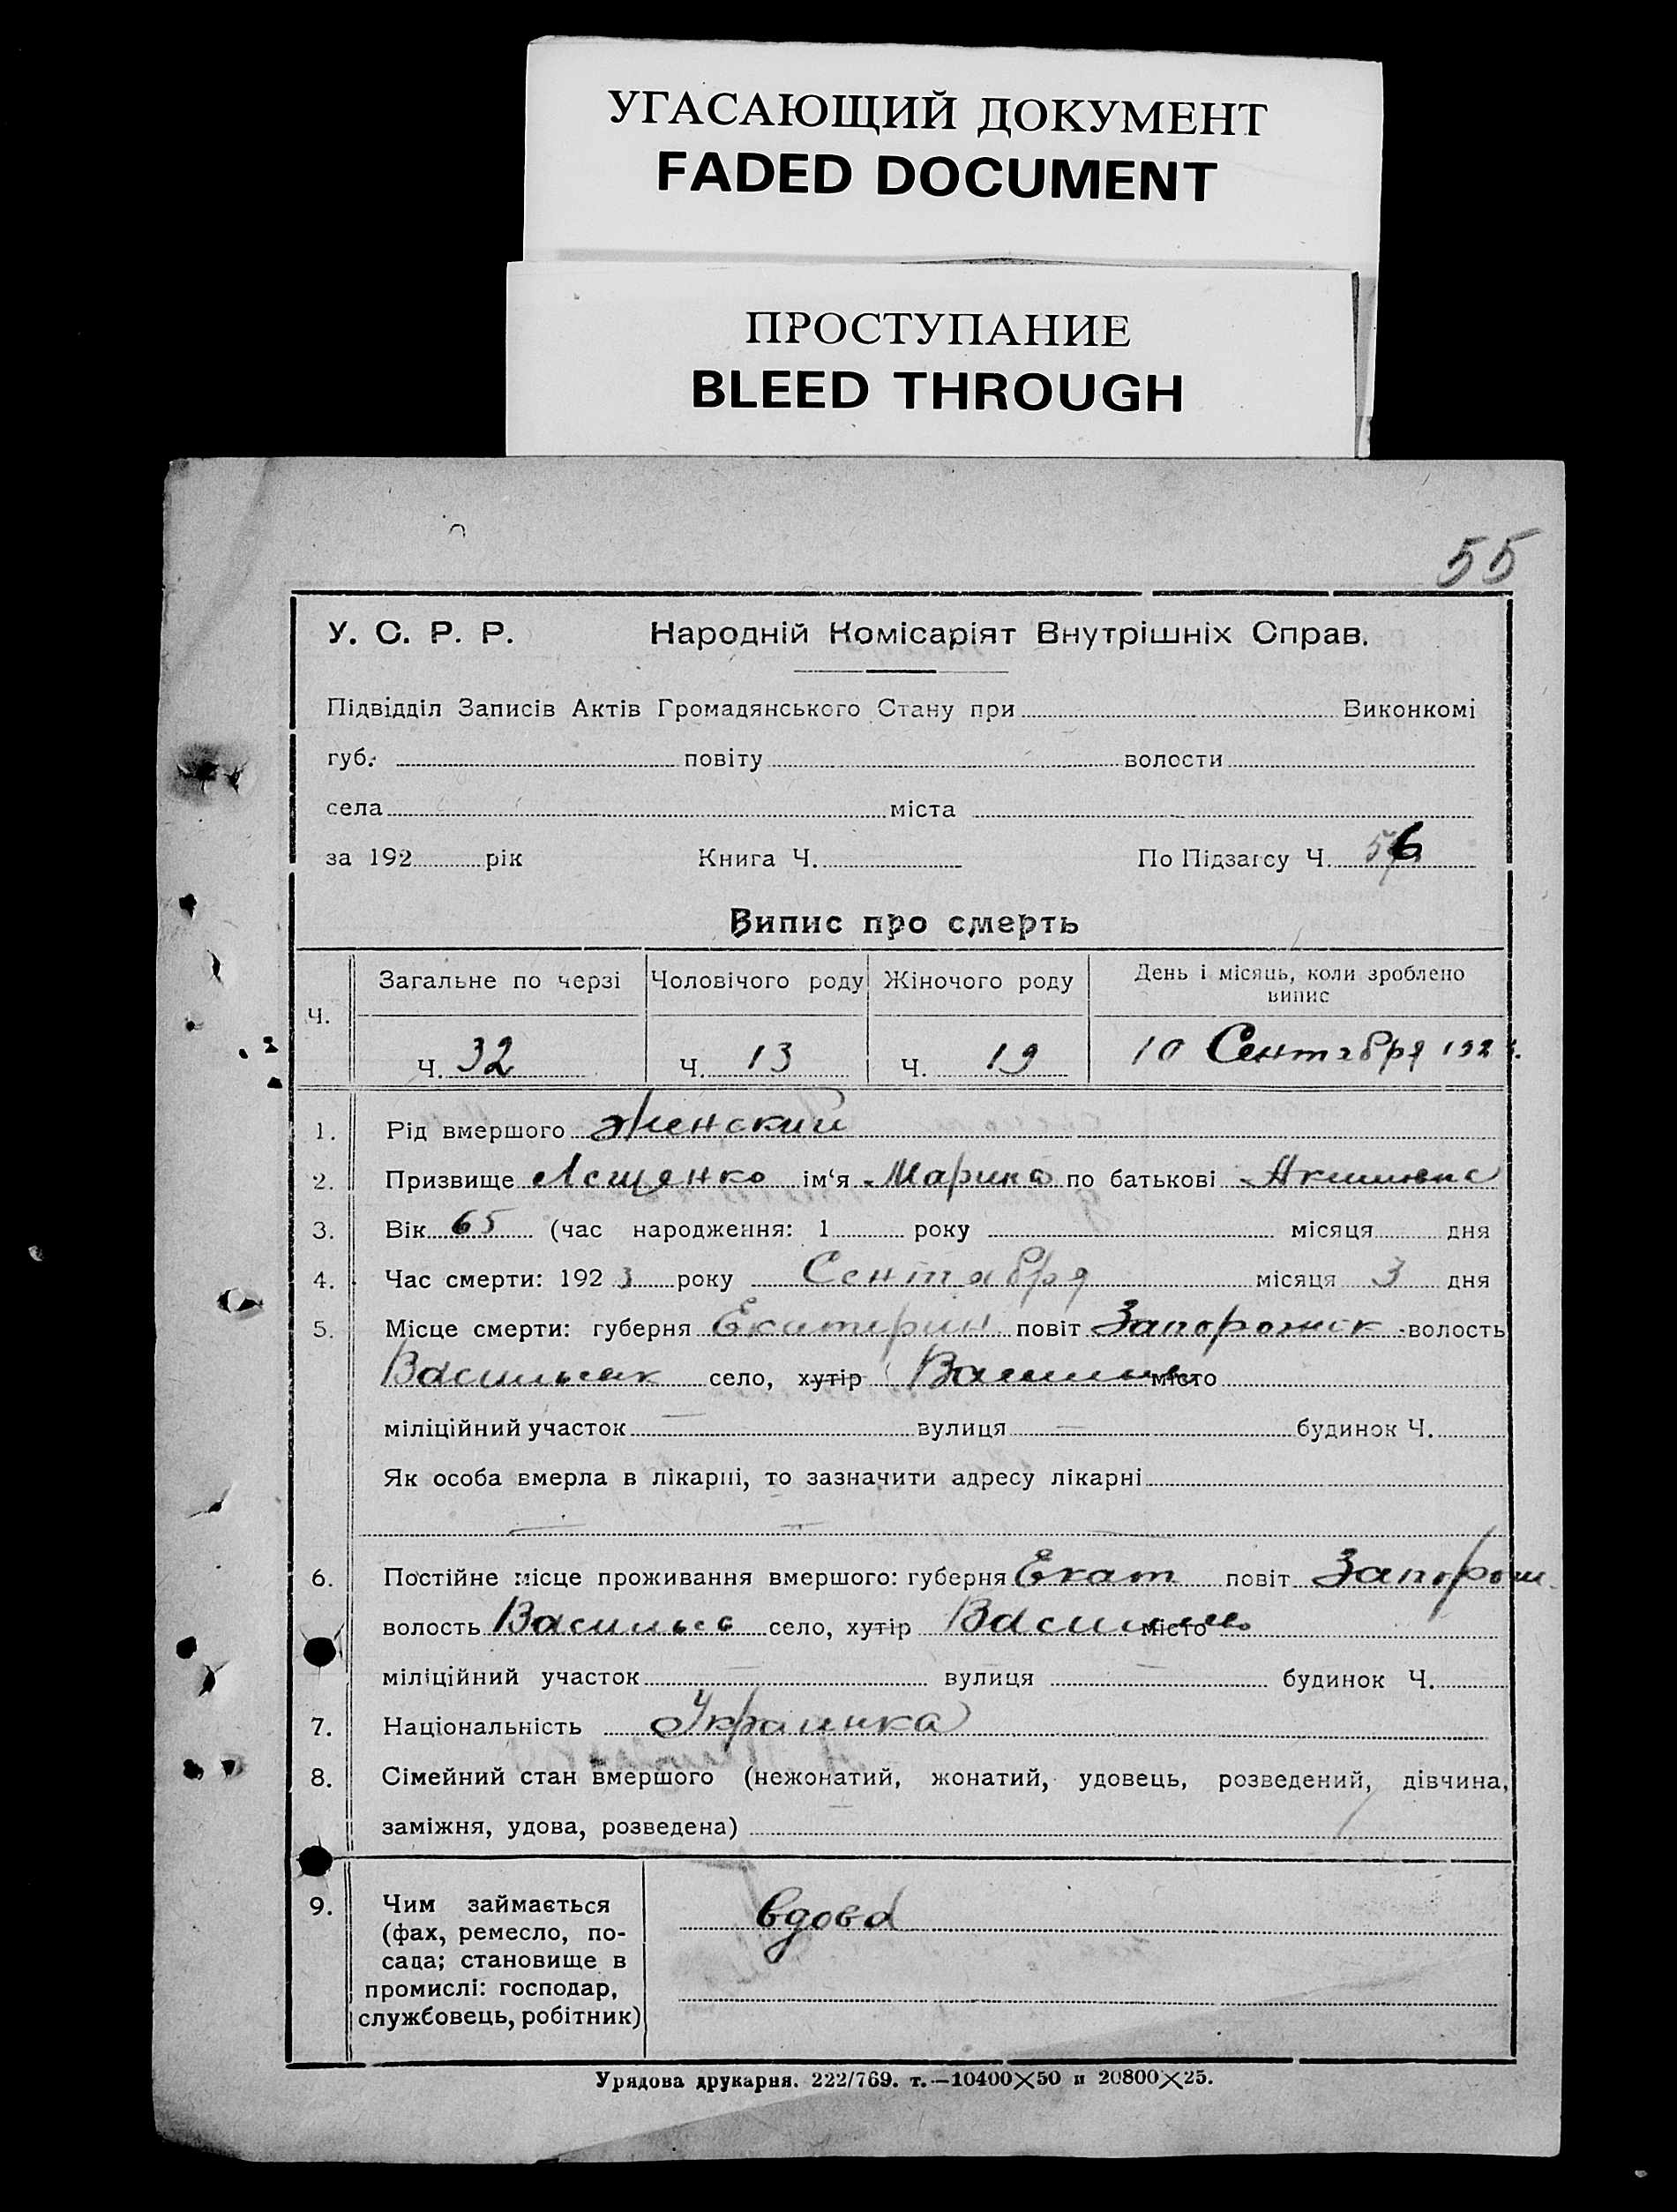 УГАСАЮЩИЙ ДОКУМЕНТ
FADED DOCUMENT
ПРОСТУПАНИЕ
BLEED THROUGH
55
У. С. Р. Р. Народній Комісаріят Внутрішніх Справ.
Підвідділ Записів Актів Громадянського Стану при Виконкомі
губ. повіту волости
села міста
за 192 рік Книга Ч. По Підзагсу Ч. 56
Випис про смерть
Ч. Загальне по черзі Чоловічого роду Жіночого роду День і місяць, коли зроблено випис
Ч. 32 Ч. 13 Ч. 19 10 Сентября 192
1. Рід вмершого Женский
2. Призвище Лещенко ім‘я Марина по батькові
3. Вік 65 (час народження: 1 року місяця дня
4. Час смерти: 192 3 року Сентября місяця 3 дня
5. Місце смерти: губерня Екатерин повіт Запорожск волость
село, хутір місто
міліційний участок — вулиця — будинок Ч.
Як особа вмерла в лікарні, то зазначити адресу лікарні
— — —
6. Постійне місце проживання вмершого: губерня Екат повіт Запорож
волость село, хутір місто
міліційний участок — вулиця — будинок Ч.
7. Національність Украинка
8. Сімейний стан вмершого (нежонатий, жонатий, удовець, розведений, дівчина,
заміжня, удова, розведена)
9. Чим займається
(фах, ремесло, по-
сада; становище в
промислі: господар,
службовець, робітник)
вдова
Урядова друкарня. 222/769. т.—10400×50 и 20800×25.